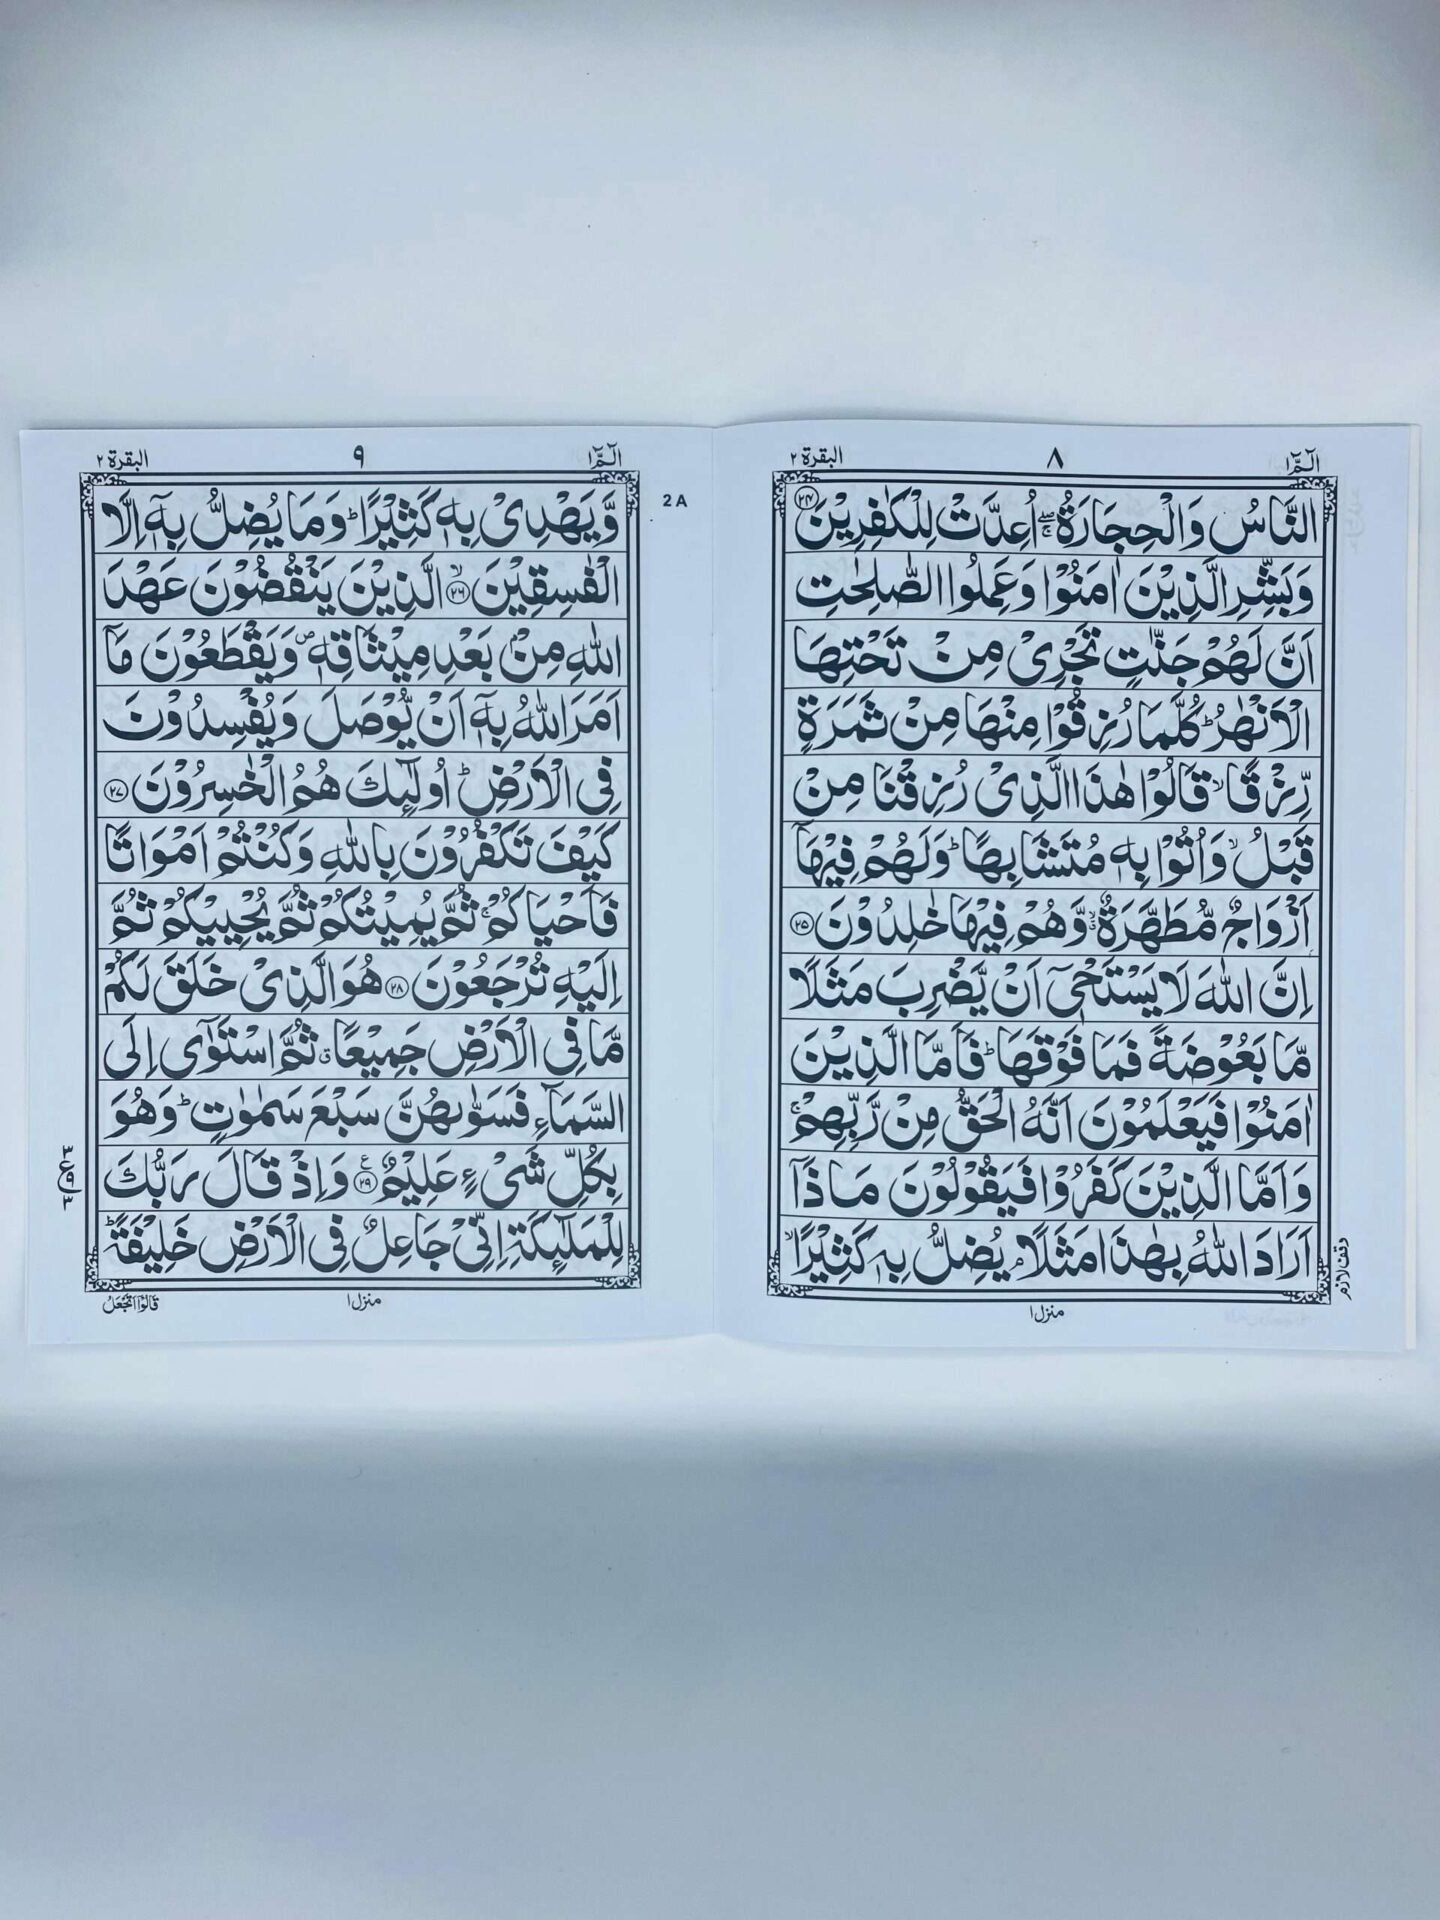 الٓمّٓ ١
٨
البقرة ٢
النَّاسُ وَالْحِجَارَةُ ۖۚ اُعِدَّتْ لِلْكٰفِرِيْنَ ﴿۲۴﴾
وَبَشِّرِ الَّذِيْنَ اٰمَنُوْا وَعَمِلُوا الصّٰلِحٰتِ
اَنَّ لَهُمْ جَنّٰتٍ تَجْرِيْ مِنْ تَحْتِهَا
الْاَنْهٰرُ ؕ كُلَّمَا رُزِقُوْا مِنْهَا مِنْ ثَمَرَةٍ
رِّزْقًا ۙ قَالُوْا هٰذَا الَّذِيْ رُزِقْنَا مِنْ
قَبْلُ ۙ وَاُتُوْا بِهٖ مُتَشَابِهًا ؕ وَلَهُمْ فِيْهَآ
اَزْوَاجٌ مُّطَهَّرَةٌ ۙۗ وَّهُمْ فِيْهَا خٰلِدُوْنَ ﴿۲۵﴾
اِنَّ اللّٰهَ لَا يَسْتَحْيٖٓ اَنْ يَّضْرِبَ مَثَلًا
مَّا بَعُوْضَةً فَمَا فَوْقَهَا ؕ فَاَمَّا الَّذِيْنَ
اٰمَنُوْا فَيَعْلَمُوْنَ اَنَّهُ الْحَقُّ مِنْ رَّبِّهِمْ ۚ
وَاَمَّا الَّذِيْنَ كَفَرُوْا فَيَقُوْلُوْنَ مَاذَآ
اَرَادَ اللّٰهُ بِهٰذَا مَثَلًا ۘ يُضِلُّ بِهٖ كَثِيْرًا ۙ
وقف لازم
منزل ١
الٓمّٓ ١
٩
البقرة ٢
2 A
وَّيَهْدِيْ بِهٖ كَثِيْرًا ؕ وَمَا يُضِلُّ بِهٖٓ اِلَّا
الْفٰسِقِيْنَ ۙ﴿۲۶﴾ الَّذِيْنَ يَنْقُضُوْنَ عَهْدَ
اللّٰهِ مِنْۢ بَعْدِ مِيْثَاقِهٖ ۪ وَيَقْطَعُوْنَ مَآ
اَمَرَ اللّٰهُ بِهٖٓ اَنْ يُّوْصَلَ وَيُفْسِدُوْنَ
فِي الْاَرْضِ ؕ اُولٰٓئِكَ هُمُ الْخٰسِرُوْنَ ﴿۲۷﴾
كَيْفَ تَكْفُرُوْنَ بِاللّٰهِ وَكُنْتُمْ اَمْوَاتًا
فَاَحْيَاكُمْ ۚ ثُمَّ يُمِيْتُكُمْ ثُمَّ يُحْيِيْكُمْ ثُمَّ
اِلَيْهِ تُرْجَعُوْنَ ﴿۲۸﴾ هُوَ الَّذِيْ خَلَقَ لَكُمْ
مَّا فِي الْاَرْضِ جَمِيْعًا ۗ ثُمَّ اسْتَوٰٓى اِلَى
السَّمَآءِ فَسَوّٰىهُنَّ سَبْعَ سَمٰوٰتٍ ؕ وَهُوَ
بِكُلِّ شَيْءٍ عَلِيْمٌ ﴿۲۹﴾ وَاِذْ قَالَ رَبُّكَ
لِلْمَلٰٓئِكَةِ اِنِّيْ جَاعِلٌ فِي الْاَرْضِ خَلِيْفَةً ؕ
منزل ١
قَالُوْٓا اَتَجْعَلُ